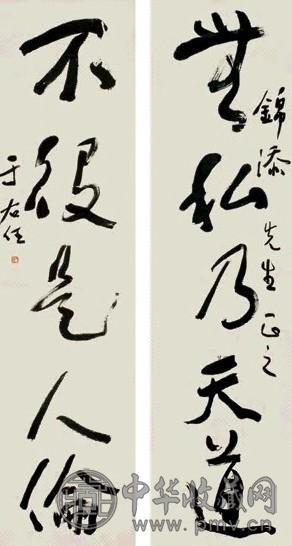 錦添先生正之
無私乃天道
不役是人倫
于右任
中华收藏网
www.pmv.cn